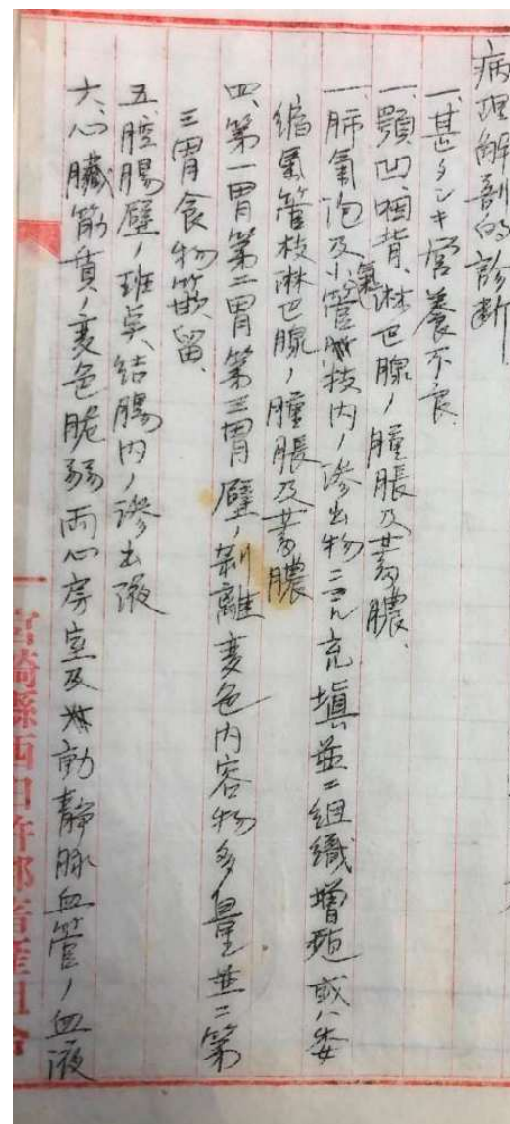 病理解剖的診断
一、甚タシキ営養不良
一、顎凹咽背、淋巴腺ノ腫脹及蓄膿、
一、肺氣泡及小氣管枝内ノ滲出物ニヨル充填並ニ組織増殖或ハ萎
縮氣管枝淋巴腺ノ腫脹及蓄膿
四、第一胃第二胃第三胃壁ノ剝離変色内容物多量並ニ第
三胃食物箝留、
五、腔腸壁ノ班点、結腸内ノ滲出液
六、心臓筋質ノ変色脆弱両心房室及動静脉血管ノ血液
宮崎縣西臼杵郡畜産組合